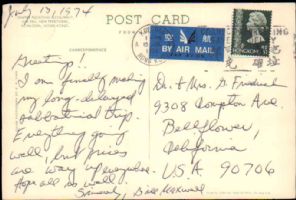 July 13, 1974
POST CARD
CORRESPONDENCE
Greetings!
I am finally making
my long-delayed
sabbatical trip.
Everything going
well, but prices
are way up everywhere.
Hope all is well.
Sincerely, Bill Maxwell
航空
BY AIR MAIL
HONG KONG
Dr. & Mrs. G. Friedrich
9308 Compton Ave.
Bellflower,
California
USA 90706